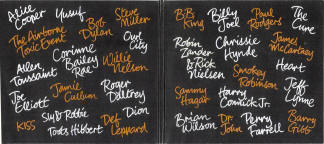 Alice Cooper
Yusuf
Bob Dylan
Steve Miller
The Airborne Toxic Event
Owl City
Corinne Bailey Rae
Willie Nelson
Allen Toussaint
Jamie Cullum
Roger Daltrey
Joe Elliott
Dion
KISS
Sly & Robbie
Toots Hibbert
Def Leppard
B.B. King
Billy Joel
Paul Rodgers
The Cure
Robin Zander & Rick Nielsen
Chrissie Hynde
James McCartney
Heart
Smokey Robinson
Jeff Lynne
Sammy Hagar
Harry Connick Jr.
Brian Wilson
Dr. John
Perry Farrell
Barry Gibb